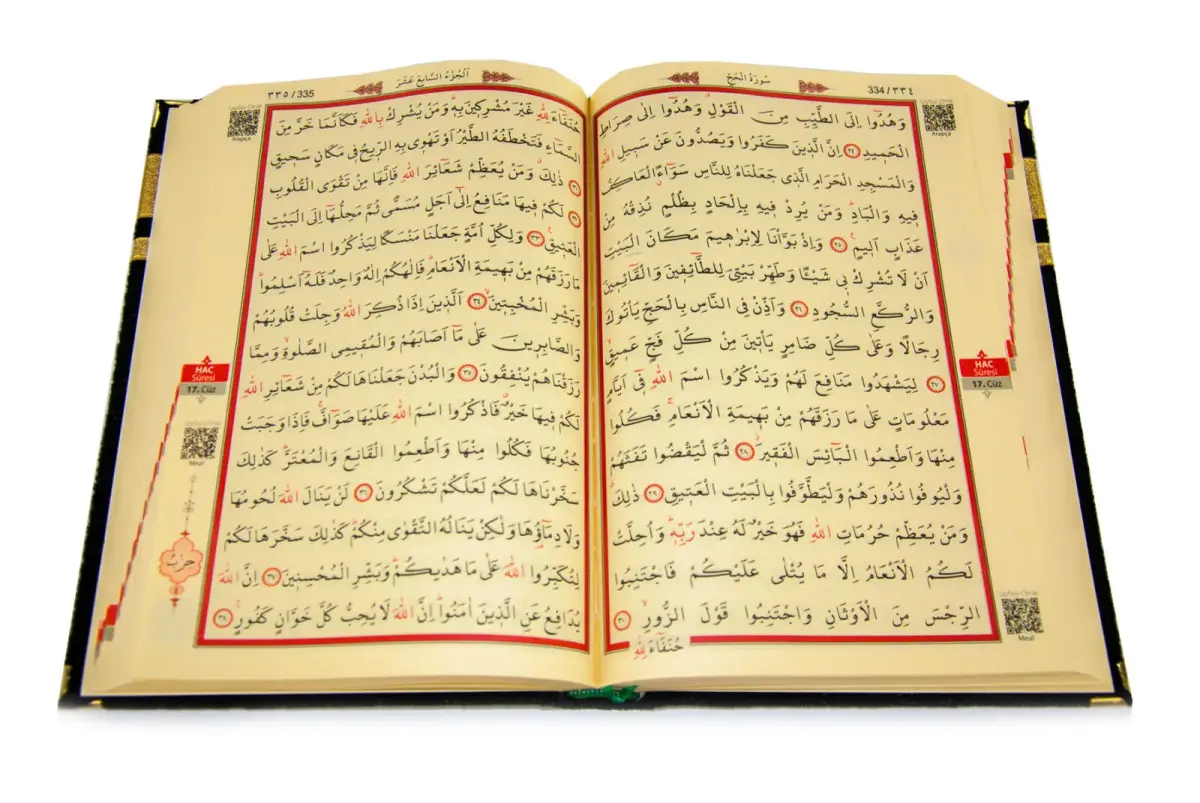 سُورَةُ الْحَجّ
334 / ٣٣٤
وَهُدُٓوا اِلَى الطَّيِّبِ مِنَ الْقَوْلِۚ وَهُدُٓوا اِلٰى صِرَاطِ
الْحَم۪يدِ ٢٤ اِنَّ الَّذ۪ينَ كَفَرُوا وَيَصُدُّونَ عَنْ سَب۪يلِ اللّٰهِ
وَالْمَسْجِدِ الْحَرَامِ الَّذ۪ي جَعَلْنَاهُ لِلنَّاسِ سَوَٓاءًۨ الْعَاكِفُ
ف۪يهِ وَالْبَادِۜ وَمَنْ يُرِدْ ف۪يهِ بِاِلْحَادٍ بِظُلْمٍ نُذِقْهُ مِنْ
عَذَابٍ اَل۪يمٍ۟ ٢٥ وَاِذْ بَوَّأْنَا لِاِبْرٰه۪يمَ مَكَانَ الْبَيْتِ
اَنْ لَا تُشْرِكْ ب۪ي شَيْـًٔا وَطَهِّرْ بَيْتِيَ لِلطَّٓائِف۪ينَ وَالْقَٓائِم۪ينَ
وَالرُّكَّعِ السُّجُودِ ٢٦ وَاَذِّنْ فِي النَّاسِ بِالْحَجِّ يَأْتُوكَ
رِجَالًا وَعَلٰى كُلِّ ضَامِرٍ يَأْت۪ينَ مِنْ كُلِّ فَجٍّ عَم۪يقٍۙ
٢٧ لِيَشْهَدُوا مَنَافِعَ لَهُمْ وَيَذْكُرُوا اسْمَ اللّٰهِ ف۪ٓي اَيَّامٍ
مَعْلُومَاتٍ عَلٰى مَا رَزَقَهُمْ مِنْ بَه۪يمَةِ الْاَنْعَامِۚ فَكُلُوا
مِنْهَا وَاَطْعِمُوا الْبَٓائِسَ الْفَق۪يرَۘ ٢٨ ثُمَّ لْيَقْضُوا تَفَثَهُمْ
وَلْيُوفُوا نُذُورَهُمْ وَلْيَطَّوَّفُوا بِالْبَيْتِ الْعَت۪يقِ ٢٩ ذٰلِكَۗ
وَمَنْ يُعَظِّمْ حُرُمَاتِ اللّٰهِ فَهُوَ خَيْرٌ لَهُ عِنْدَ رَبِّه۪ۜ وَاُحِلَّتْ
لَكُمُ الْاَنْعَامُ اِلَّا مَا يُتْلٰى عَلَيْكُمْ فَاجْتَنِبُوا
الرِّجْسَ مِنَ الْاَوْثَانِ وَاجْتَنِبُوا قَوْلَ الزُّورِۙ ٣٠
حُنَفَٓاءَ لِلّٰهِ
Arapça
HAC
Sûresi
17. Cüz
Meal
اَلْجُزْءُ السَّابِعَ عَشَرَ
٣٣٥ / 335
حُنَفَٓاءَ لِلّٰهِ غَيْرَ مُشْرِك۪ينَ بِه۪ۜ وَمَنْ يُشْرِكْ بِاللّٰهِ فَكَاَنَّمَا خَرَّ مِنَ
السَّمَٓاءِ فَتَخْطَفُهُ الطَّيْرُ اَوْ تَهْو۪ي بِهِ الرّ۪يحُ ف۪ي مَكَانٍ سَح۪يقٍ
٣١ ذٰلِكَۗ وَمَنْ يُعَظِّمْ شَعَٓائِرَ اللّٰهِ فَاِنَّهَا مِنْ تَقْوَى الْقُلُوبِ
٣٢ لَكُمْ ف۪يهَا مَنَافِعُ اِلٰٓى اَجَلٍ مُسَمًّى ثُمَّ مَحِلُّهَٓا اِلَى الْبَيْتِ
الْعَت۪يقِ۟ ٣٣ وَلِكُلِّ اُمَّةٍ جَعَلْنَا مَنْسَكًا لِيَذْكُرُوا اسْمَ اللّٰهِ عَلٰى
مَا رَزَقَهُمْ مِنْ بَه۪يمَةِ الْاَنْعَامِۜ فَاِلٰهُكُمْ اِلٰهٌ وَاحِدٌ فَلَهُٓ اَسْلِمُواۜ
وَبَشِّرِ الْمُخْبِت۪ينَۙ ٣٤ اَلَّذ۪ينَ اِذَا ذُكِرَ اللّٰهُ وَجِلَتْ قُلُوبُهُمْ
وَالصَّابِر۪ينَ عَلٰى مَٓا اَصَابَهُمْ وَالْمُق۪يمِي الصَّلٰوةِۙ وَمِمَّا
رَزَقْنَاهُمْ يُنْفِقُونَ ٣٥ وَالْبُدْنَ جَعَلْنَاهَا لَكُمْ مِنْ شَعَٓائِرِ اللّٰهِ
لَكُمْ ف۪يهَا خَيْرٌۗ فَاذْكُرُوا اسْمَ اللّٰهِ عَلَيْهَا صَوَٓافَّۚ فَاِذَا وَجَبَتْ
جُنُوبُهَا فَكُلُوا مِنْهَا وَاَطْعِمُوا الْقَانِعَ وَالْمُعْتَرَّۜ كَذٰلِكَ
سَخَّرْنَاهَا لَكُمْ لَعَلَّكُمْ تَشْكُرُونَ ٣٦ لَنْ يَنَالَ اللّٰهَ لُحُومُهَا
وَلَا دِمَٓاؤُ۬هَا وَلٰكِنْ يَنَالُهُ التَّقْوٰى مِنْكُمْۜ كَذٰلِكَ سَخَّرَهَا لَكُمْ
لِتُكَبِّرُوا اللّٰهَ عَلٰى مَا هَدٰيكُمْۜ وَبَشِّرِ الْمُحْسِن۪ينَ ٣٧ اِنَّ اللّٰهَ
يُدَافِعُ عَنِ الَّذ۪ينَ اٰمَنُواۜ اِنَّ اللّٰهَ لَا يُحِبُّ كُلَّ خَوَّانٍ كَفُورٍ۟ ٣٨
Arapça
HAC
Sûresi
17. Cüz
Meal
حزب